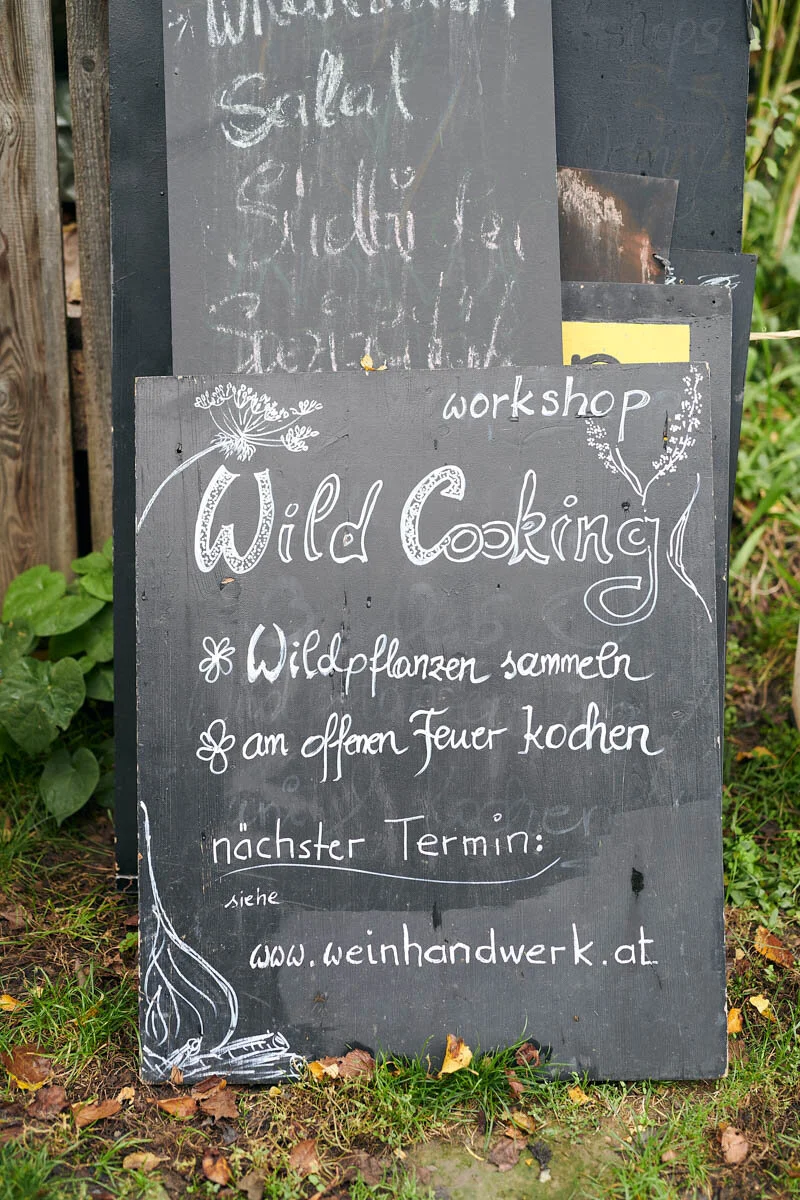 Salat
workshop
Wild Cooking
Wildpflanzen sammeln
am offenen Feuer kochen
nächster Termin:
siehe
www.weinhandwerk.at